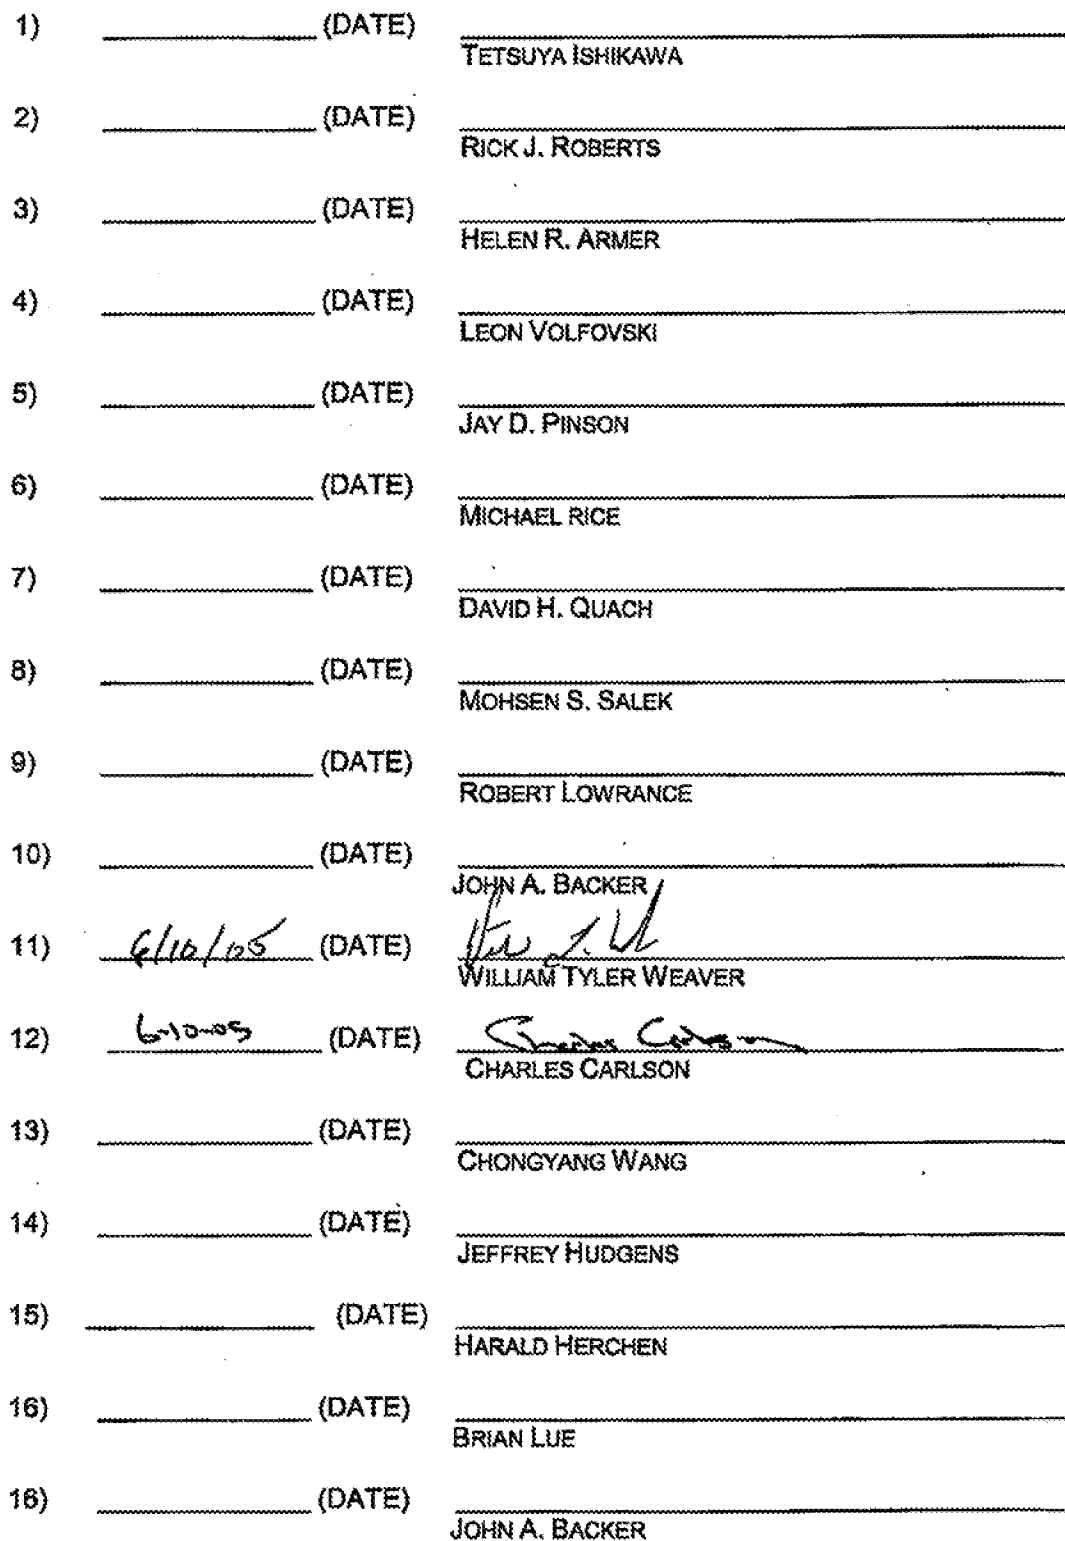 1) (DATE)
TETSUYA ISHIKAWA
2) (DATE)
RICK J. ROBERTS
3) (DATE)
HELEN R. ARMER
4) (DATE)
LEON VOLFOVSKI
5) (DATE)
JAY D. PINSON
6) (DATE)
MICHAEL RICE
7) (DATE)
DAVID H. QUACH
8) (DATE)
MOHSEN S. SALEK
9) (DATE)
ROBERT LOWRANCE
10) (DATE)
JOHN A. BACKER
11) 6/10/05 (DATE)
WILLIAM TYLER WEAVER
12) 6-10-05 (DATE) Charles Carlson
CHARLES CARLSON
13) (DATE)
CHONGYANG WANG
14) (DATE)
JEFFREY HUDGENS
15) (DATE)
HARALD HERCHEN
16) (DATE)
BRIAN LUE
16) (DATE)
JOHN A. BACKER